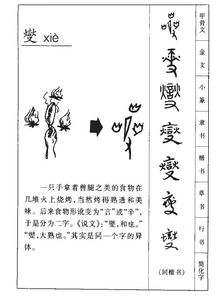 燮 xiè
一只手拿着兽腿之类的食物在
几堆火上烧烤,当然烤得熟透和美
味。后来食物形讹变为“言”或“辛”,
于是分为二字。《说文》:“燮,和也。”
“燮,大熟也。”其实是同一个字的异
体。
甲骨文
金文
小篆
隶书
楷书
草书
行书
简化字
燮
燮
燮
(同楷书)